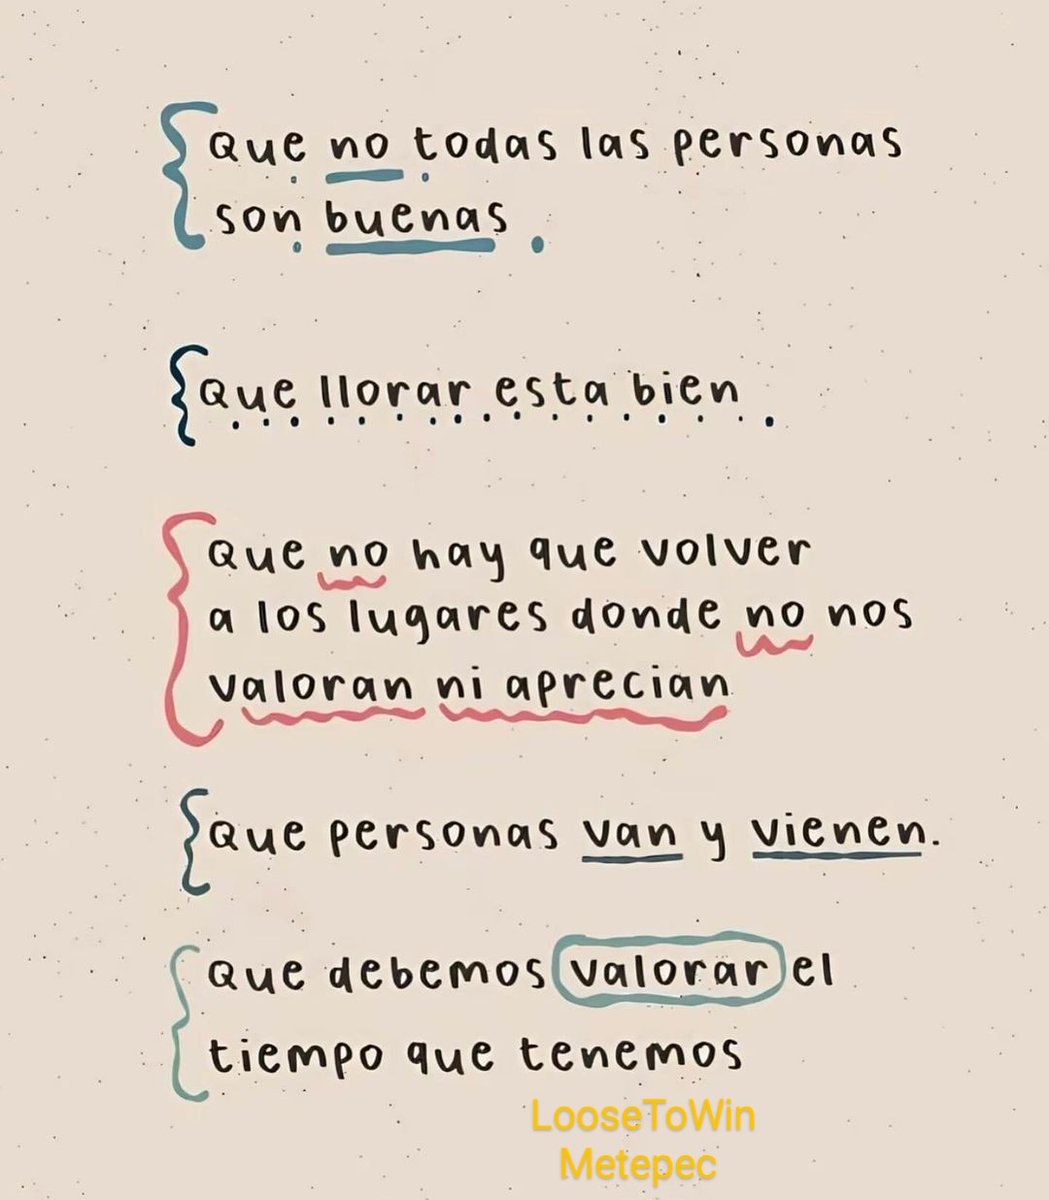 Que no todas las personas
son buenas.
Que llorar esta bien.
Que no hay que volver
a los lugares donde no nos
valoran ni aprecian
Que personas van y vienen.
Que debemos valorar el
tiempo que tenemos
LooseToWin
Metepec